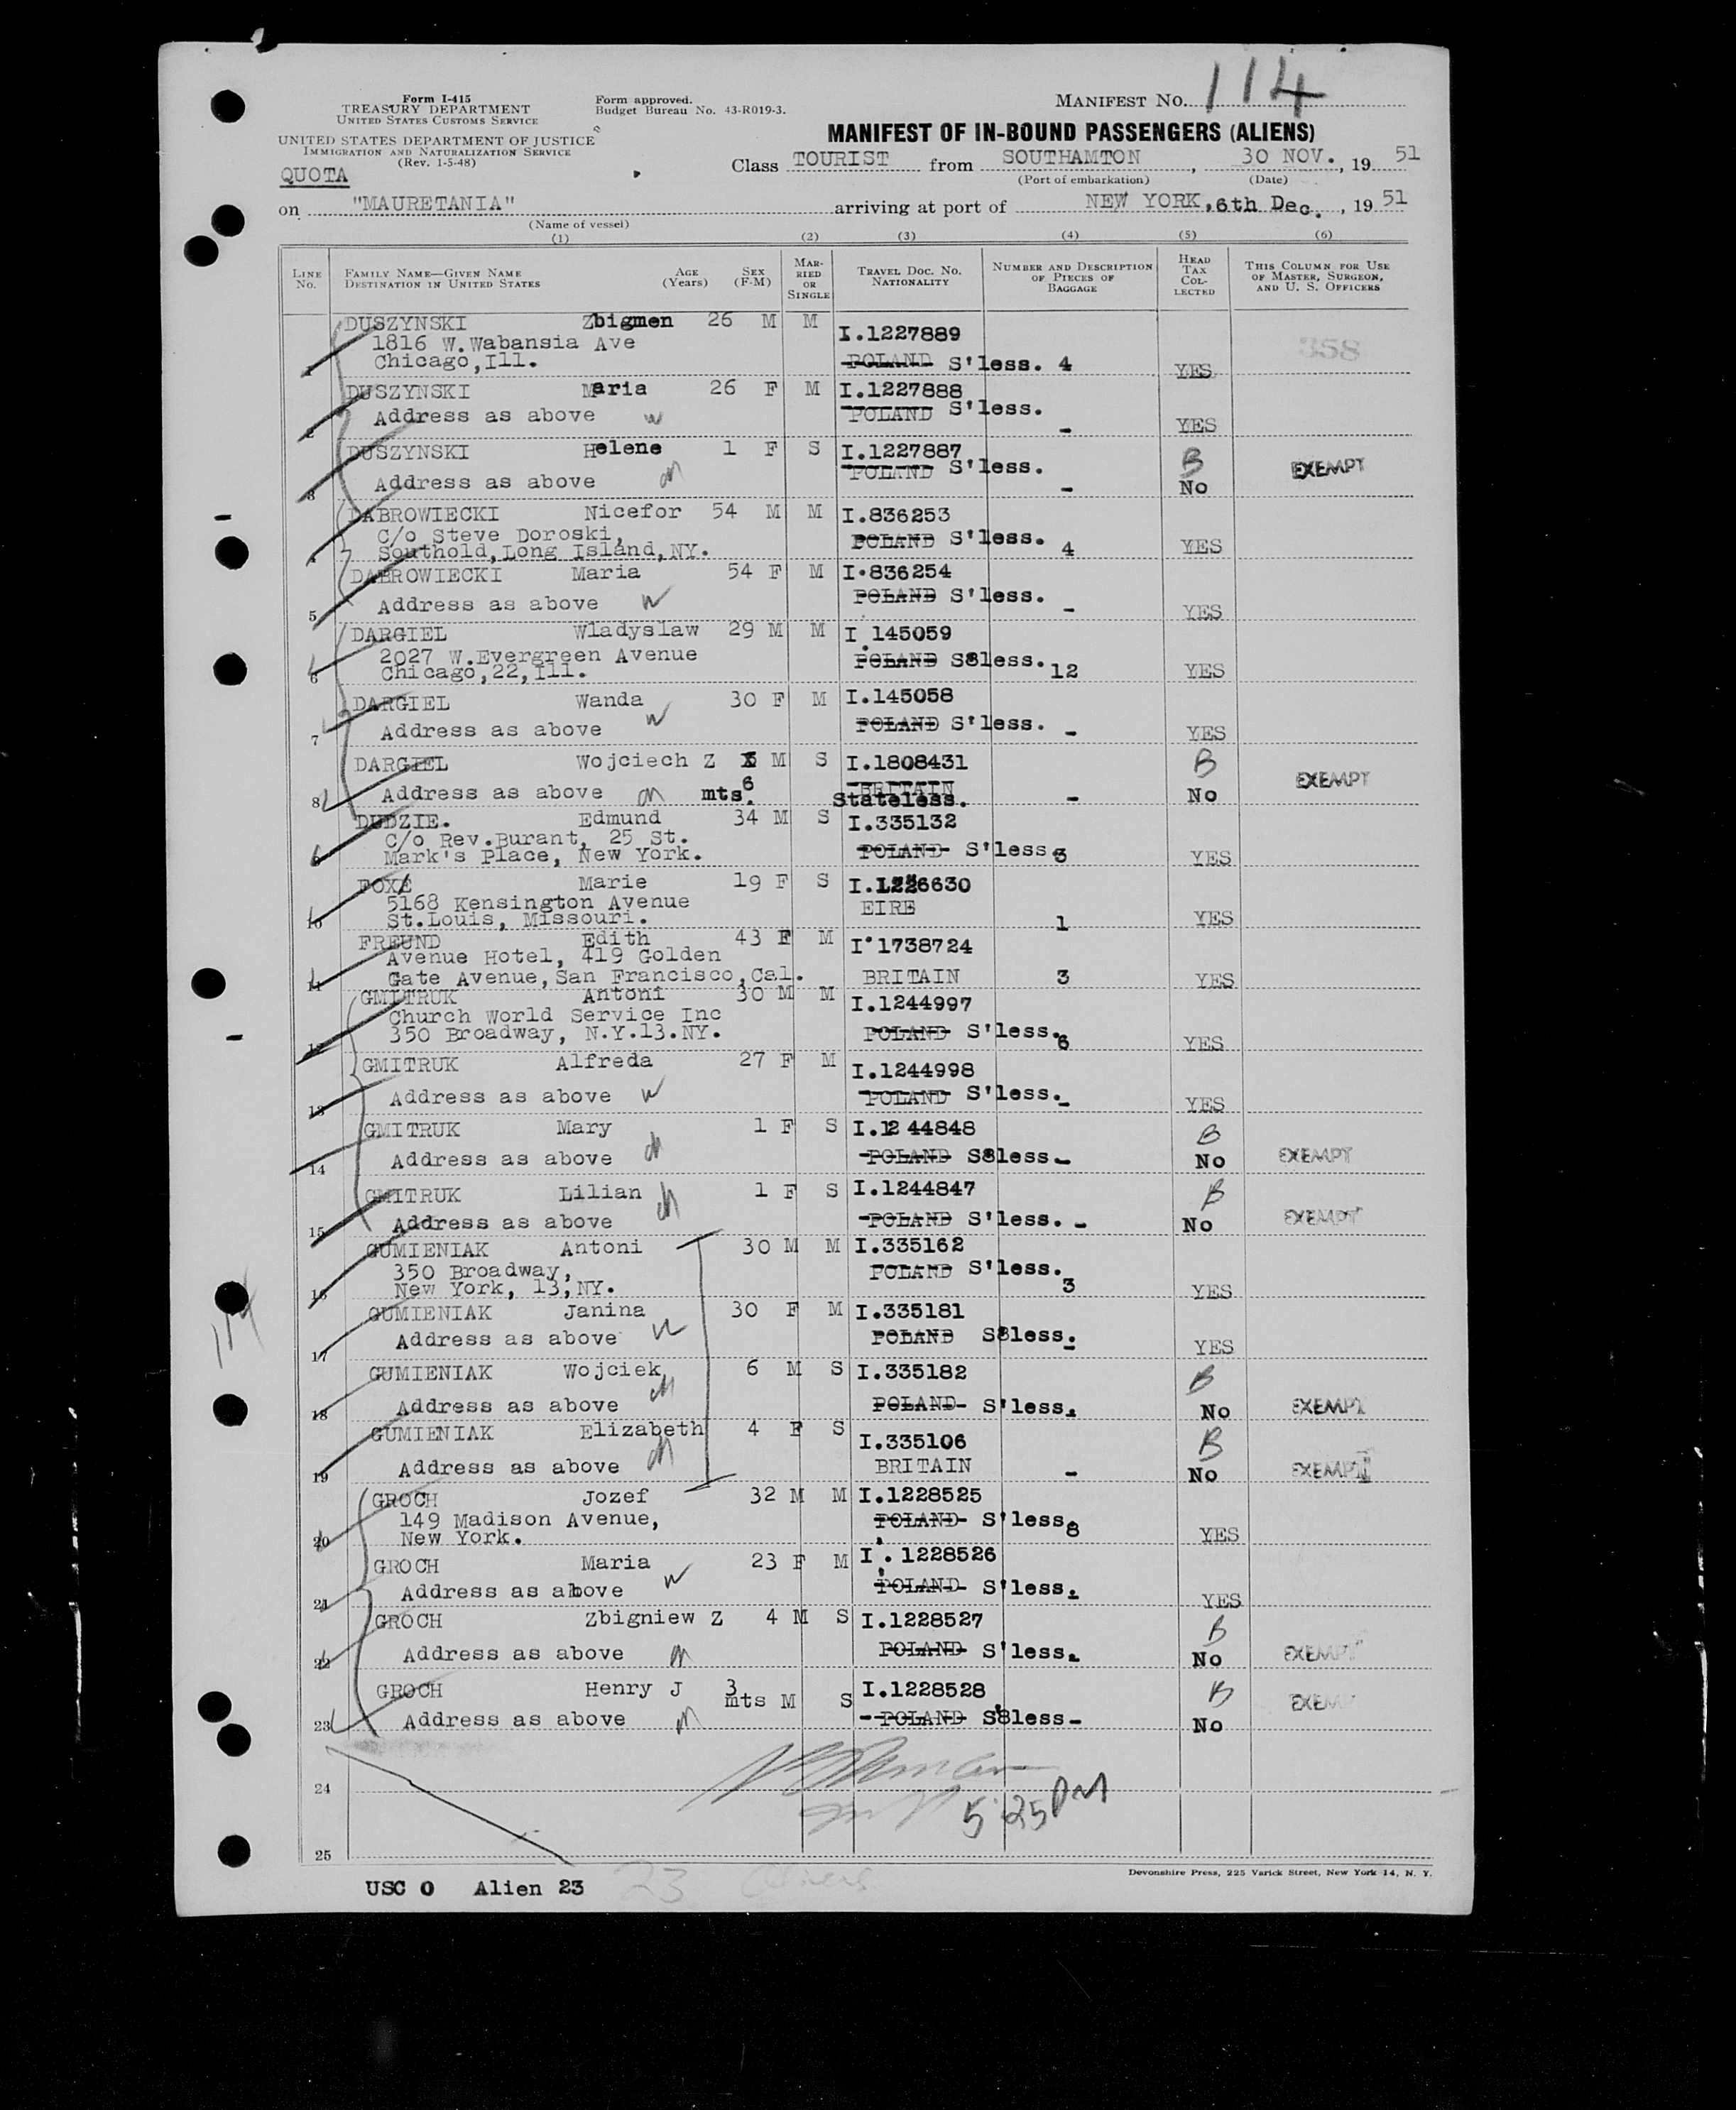 Form I-415
TREASURY DEPARTMENT
UNITED STATES CUSTOMS SERVICE
UNITED STATES DEPARTMENT OF JUSTICE
IMMIGRATION AND NATURALIZATION SERVICE
(Rev. 1-5-48)
Form approved.
Budget Bureau No. 43-R019-3.
MANIFEST NO. 114
MANIFEST OF IN-BOUND PASSENGERS (ALIENS)
QUOTA
Class TOURIST from SOUTHAMTON, 30 NOV., 19 51
(Port of embarkation) (Date)
on "MAURETANIA" arriving at port of NEW YORK, 6th Dec., 19 51
(Name of vessel)
(1) (2) (3) (4) (5) (6)
LINE NO. FAMILY NAME—GIVEN NAME DESTINATION IN UNITED STATES AGE (Years) SEX (F-M) MARRIED OR SINGLE TRAVEL DOC. NO. NATIONALITY NUMBER AND DESCRIPTION OF PIECES OF BAGGAGE HEAD TAX COLLECTED THIS COLUMN FOR USE OF MASTER, SURGEON, AND U. S. OFFICERS
DUSZYNSKI Zbigmen 26 M M I.1227889
1816 W.Wabansia Ave 358
1 Chicago,Ill. POLAND S'less. 4 YES
DUSZYNSKI Maria 26 F M I.1227888
2 Address as above w POLAND S'less. - YES
DUSZYNSKI Helene 1 F S I.1227887 B EXEMPT
3 Address as above POLAND S'less. - No
DABROWIECKI Nicefor 54 M M I.836253
C/o Steve Doroski,
4 Southold,Long Island,NY. POLAND S'less. 4 YES
DABROWIECKI Maria 54 F M I.836254
5 Address as above w POLAND S'less. - YES
DARGIEL Wladyslaw 29 M M I.145059
2027 W.Evergreen Avenue
6 Chicago,22,Ill. POLAND S8less. 12 YES
DARGIEL Wanda 30 F M I.145058
7 Address as above w POLAND S'less. - YES
DARGIEL Wojciech Z 6 M S I.1808431 B EXEMPT
BRITAIN
8 Address as above mts. Stateless. - No
DUDZIE. Edmund 34 M S I.335132
C/o Rev.Burant, 25 St.
9 Mark's Place, New York. POLAND S'less 3 YES
FOXE Marie 19 F S I.1226630
5168 Kensington Avenue EIRE
10 St.Louis, Missouri. 1 YES
FREUND Edith 43 F M I.1738724
Avenue Hotel, 419 Golden
11 Gate Avenue,San Francisco,Cal. BRITAIN 3 YES
GMITRUK Antoni 30 M M I.1244997
Church World Service Inc
12 350 Broadway, N.Y.13.NY. POLAND S'less. 6 YES
GMITRUK Alfreda 27 F M I.1244998
13 Address as above w POLAND S'less. - YES
GMITRUK Mary 1 F S I.12 44848 B
14 Address as above POLAND S8less - No EXEMPT
GMITRUK Lilian 1 F S I.1244847 B
15 Address as above POLAND S'less. - No EXEMPT
GUMIENIAK Antoni 30 M M I.335162
350 Broadway, POLAND S'less.
16 New York, 13,NY. 3 YES
GUMIENIAK Janina 30 F M I.335181
17 Address as above w POLAND S8less. - YES
114
GUMIENIAK Wojciek 6 M S I.335182 B
18 Address as above POLAND S'less. - No EXEMPT
GUMIENIAK Elizabeth 4 F S I.335106 B
19 Address as above BRITAIN - No EXEMPT
GROCH Jozef 32 M M I.1228525
149 Madison Avenue,
20 New York. POLAND S'less 8 YES
GROCH Maria 23 F M I.1228526
21 Address as above w POLAND S'less. - YES
GROCH Zbigniew Z 4 M S I.1228527 B
22 Address as above POLAND S'less. - No EXEMPT
GROCH Henry J 3 mts M S I.1228528 B EXEM
23 Address as above POLAND S8less - No
24
5:25 PM
25
Devonshire Press, 225 Varick Street, New York 14, N. Y.
USC 0 Alien 23 23 Aliens